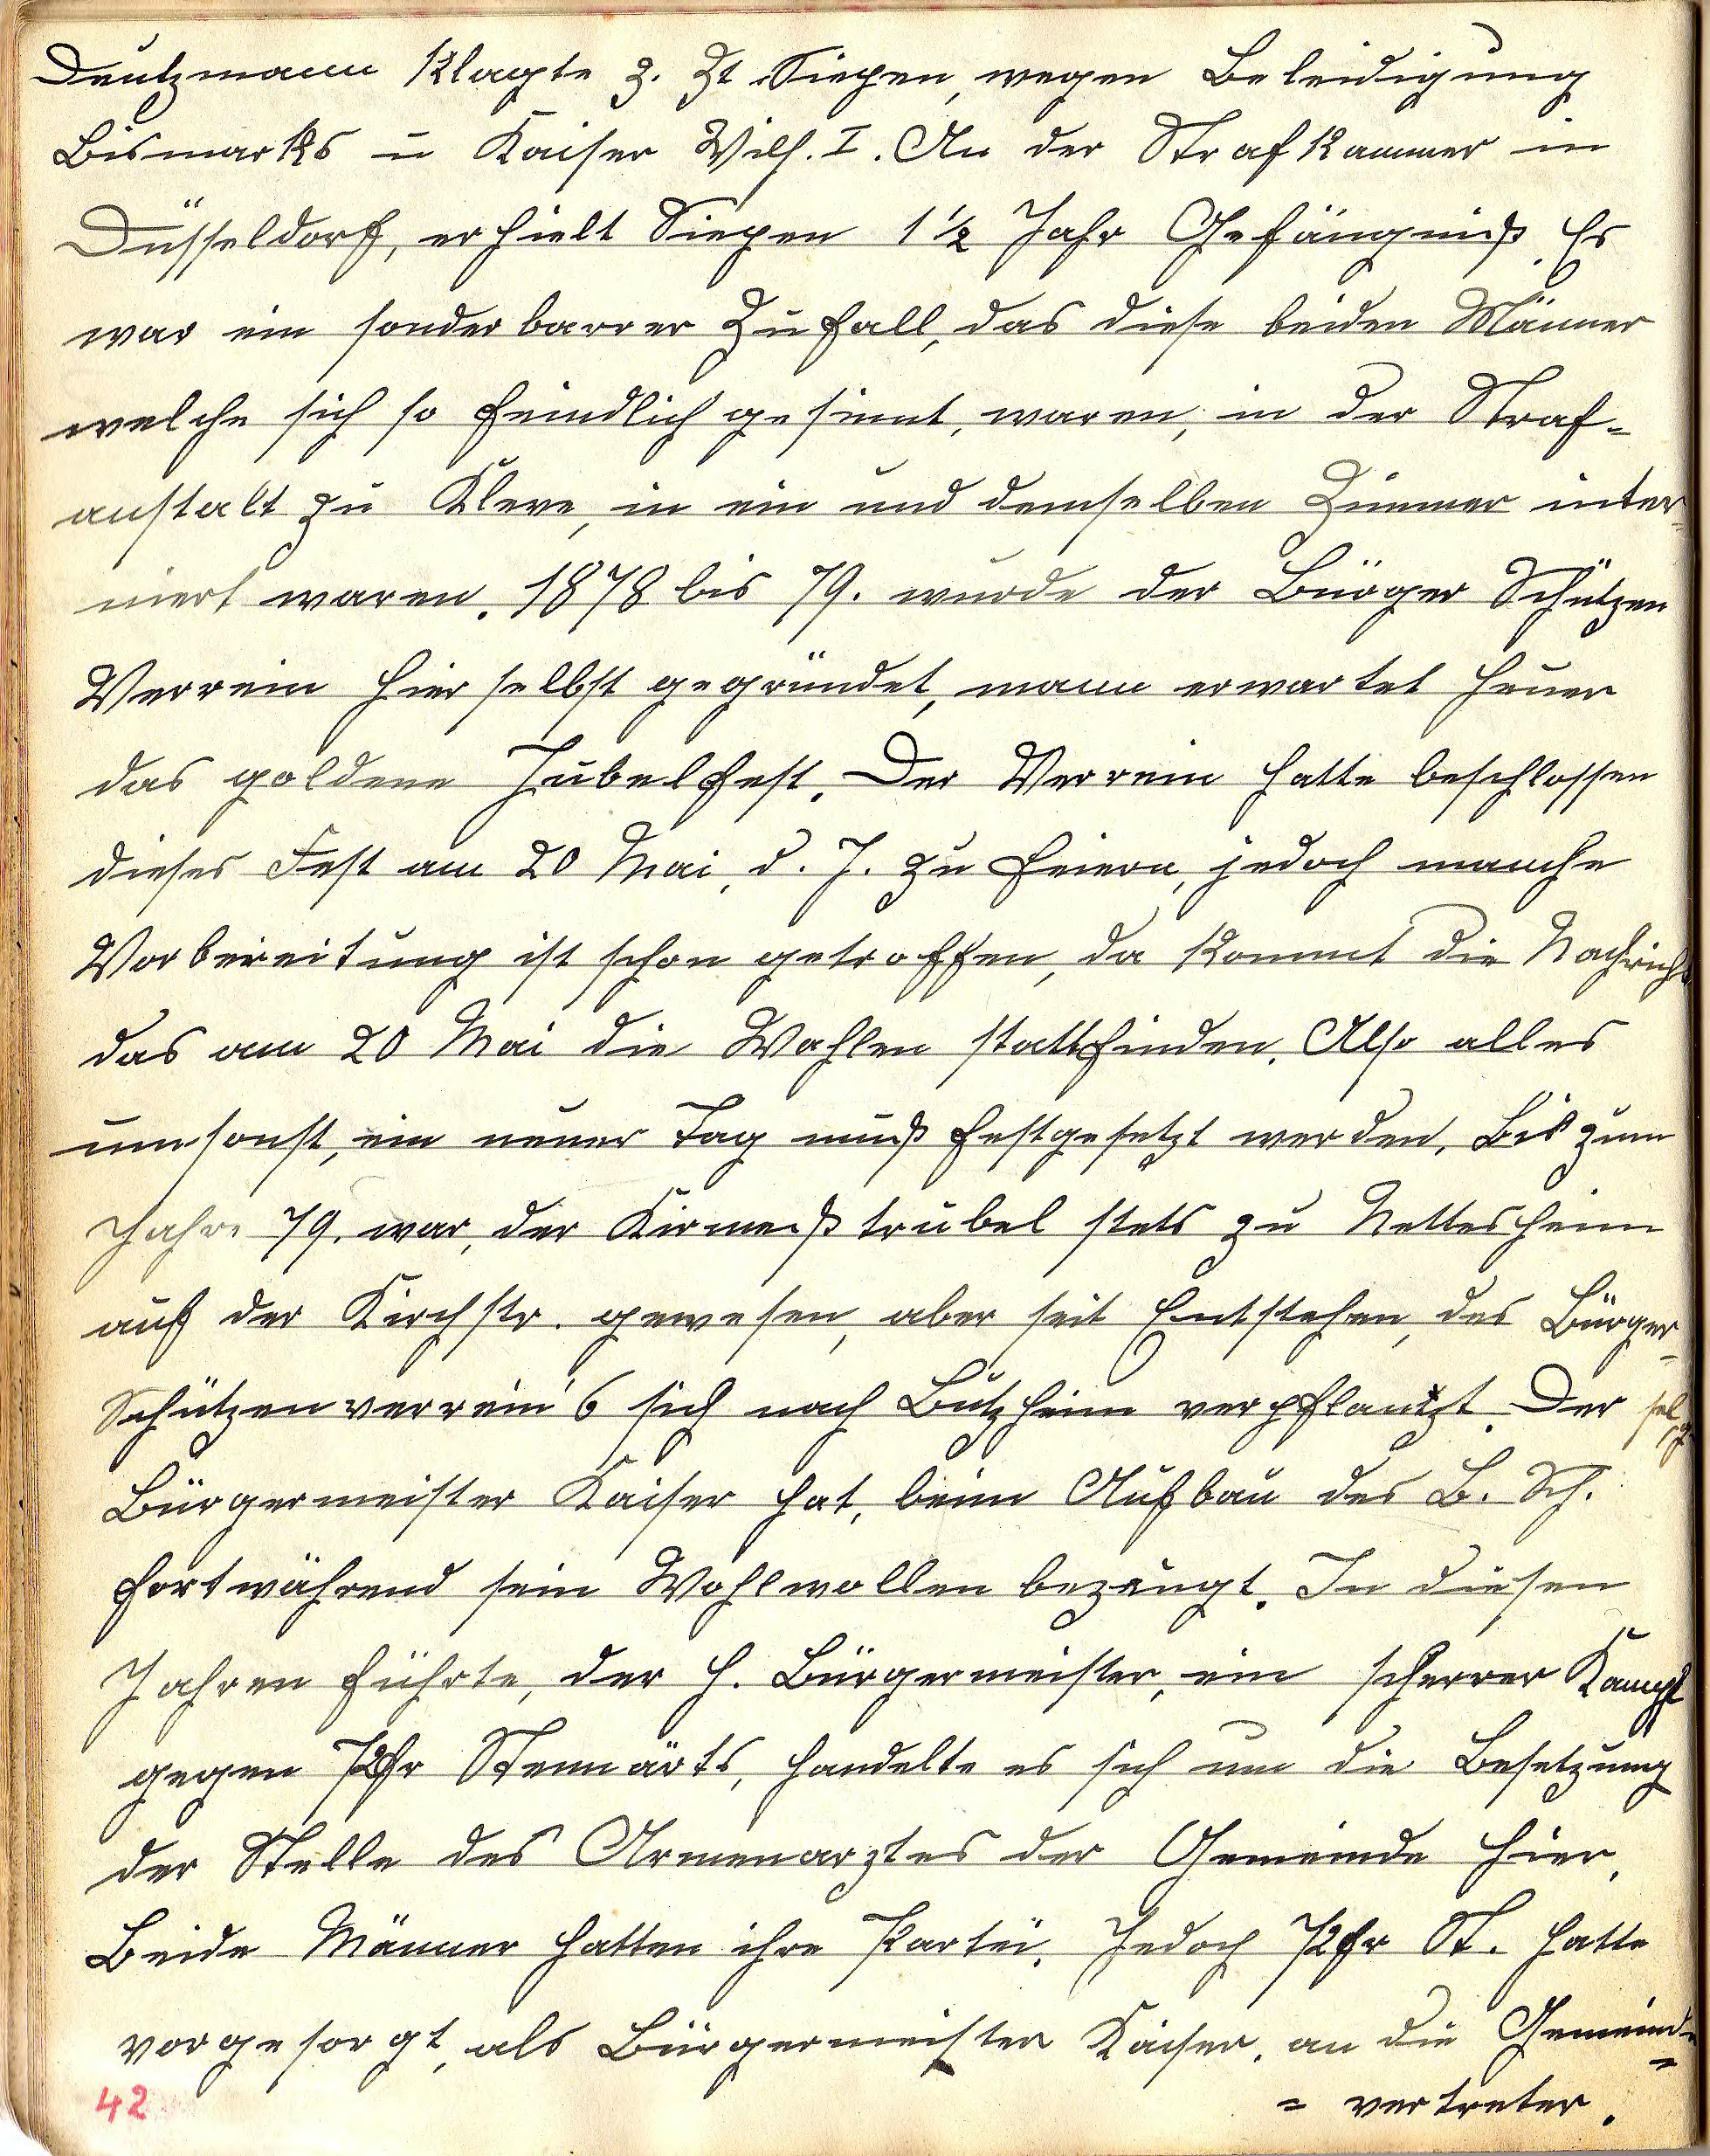 Deutzmann klagte z. Zt Siepen, wegen Beleidigung
Bismarks u Kaiser Wilh. I. An der Strafkammer in
Düsseldorf, erhielt Siepen 1½ Jahr Gefängniß. Es
war ein sonderbarrer Zufall, das diese beiden Männer
welche sich so feindlich gesinnt, waren, in der Straf-
anstalt zu Kleve, in ein und demselben Zimmer inter-
niert waren. 1878 bis 79. wurde der Bürger Schützen
Verrein hierselbst gegründet, mann erwartet heuer
das goldene Jubelfest. Der Verrein hatte beschlossen
dieses Fest am 20 Mai, d. J. zu feiern, jedoch manche
Vorbereitung ist schon getroffen, da kommt die Nachricht
das am 20 Mai die Wahlen stattfinden. Also alles
umsonst, ein neuer Tag muß festgesetzt werden. Bis zum
Jahre 79. war, der Kirmeßtrubel stets zu Nettesheim
auf der Kirchstr. gewesen, aber seit Entstehen, des Bürger-
Schützenverrein's sich nach Butzheim verpflantzt. Der selg
Bürgermeister Kaiser hat, beim Aufbau des B. Sch.
fortwährend sein Wohlwollen bezeugt. In diesen
Jahren führte, der H. Bürgermeister, ein scherrer Kampf
gegen Pfr Stennärts, handelte es sich um die Besetzung
der Stelle des Armenarztes der Gemeinde hier.
Beide Männer hatten ihre Partei. Jedoch Pfr St. hatte
vorgesorgt, als Bürgermeister Kaiser, an die Gemeinde=
= vertreter.
42